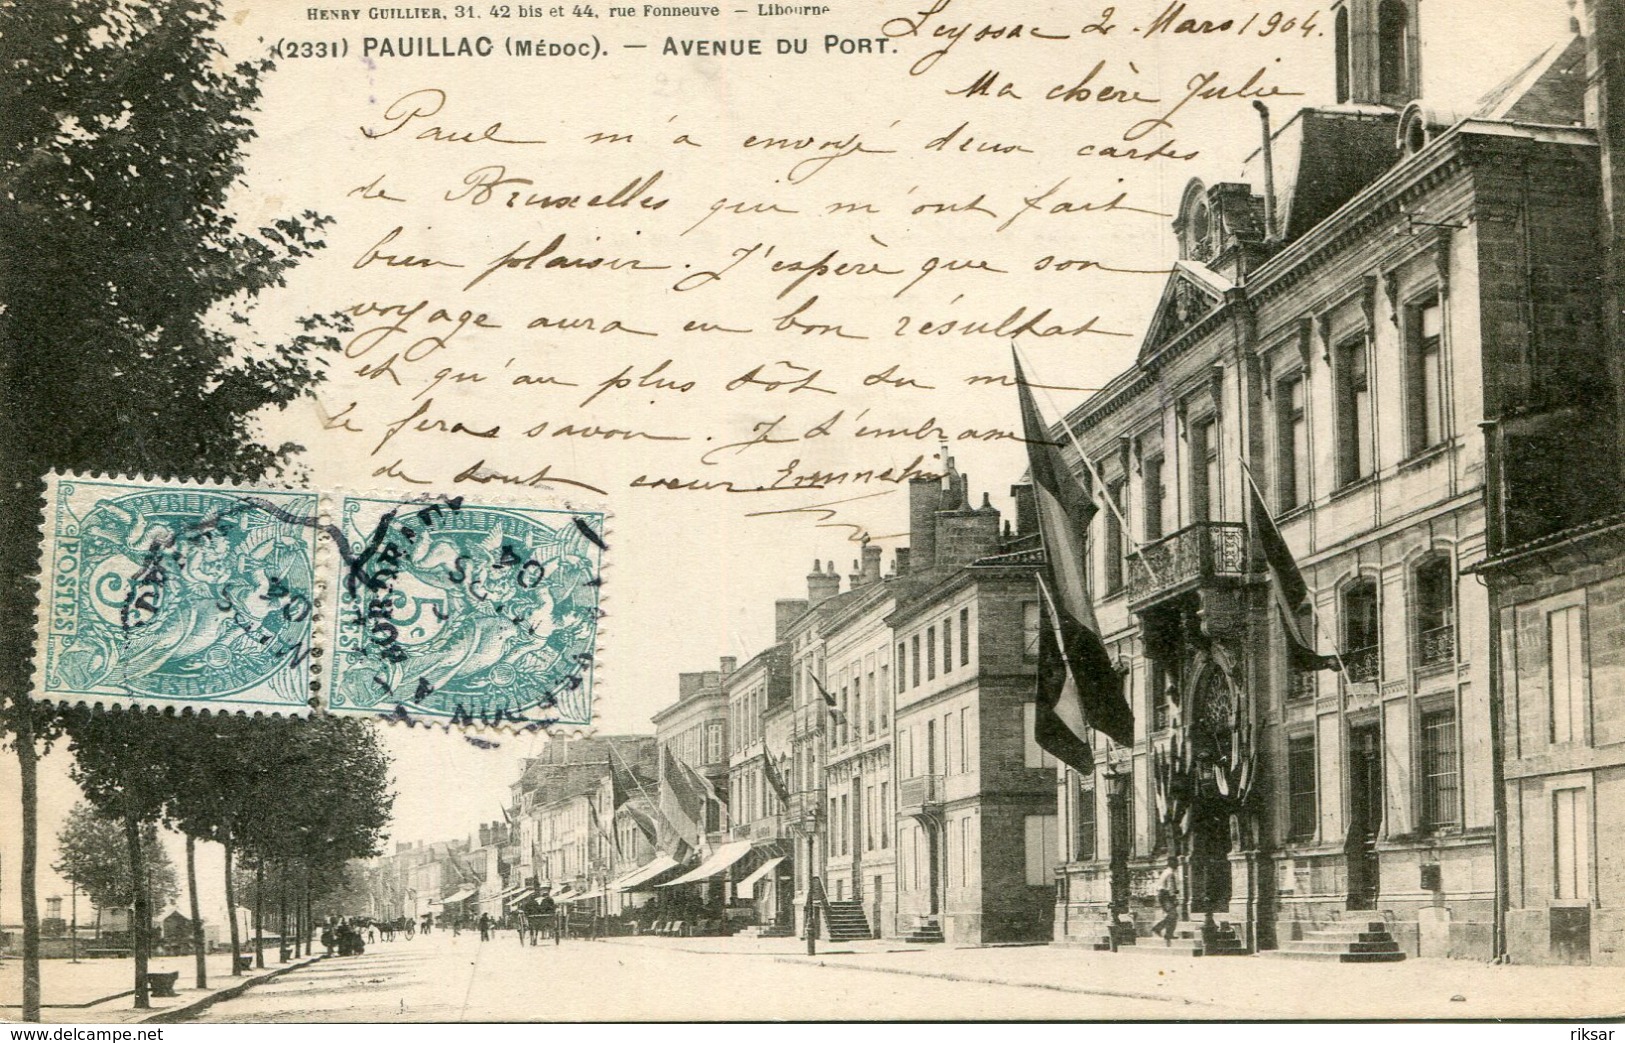 HENRY GUILLIER, 31. 42 bis et 44, rue Fonneuve — Libourne
(2331) PAUILLAC (MÉDOC). — AVENUE DU PORT.
Leyssac 2 Mars 1904.
Ma chère Julie
Paul m'a envoyé deux cartes
de Bruxelles qui m'ont fait
bien plaisir. J'espère que son
voyage aura eu bon résultat
et qu'au plus tôt tu me
le feras savoir. Je t'embrasse
de tout coeur
POSTES
5c
POSTES
5c
BORDEAUX
04
04
riksar